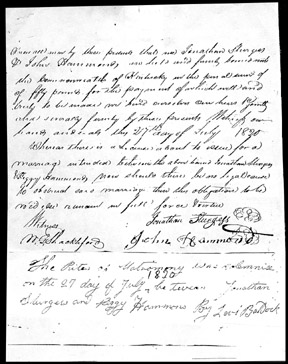 Know all men by these presents that we Jonathan Sturges
& John Hammond are held and firmly bound unto
the Commonwealth of Kentucky in the penal sum of
of fifty pounds for the payment of which well and
truly to be made we bind ourselves our heirs &c jointly
firmly by these presents
and seals this 27th day of July 1830
there is a License about to issue for a
marriage intended between the above bound Jonathan Sturges
& Peggy Hammond now should there be no legal cause
to obstruct said marriage then this obligation to be
void else remain in full force & virtue
Witness
Jonathan Sturges
John Hammond
The Rites of Matrimony was solemnised
1830
on the 27 day of July, between Jonathan
Sturgers and Pegy Hammons By Levi Baldock